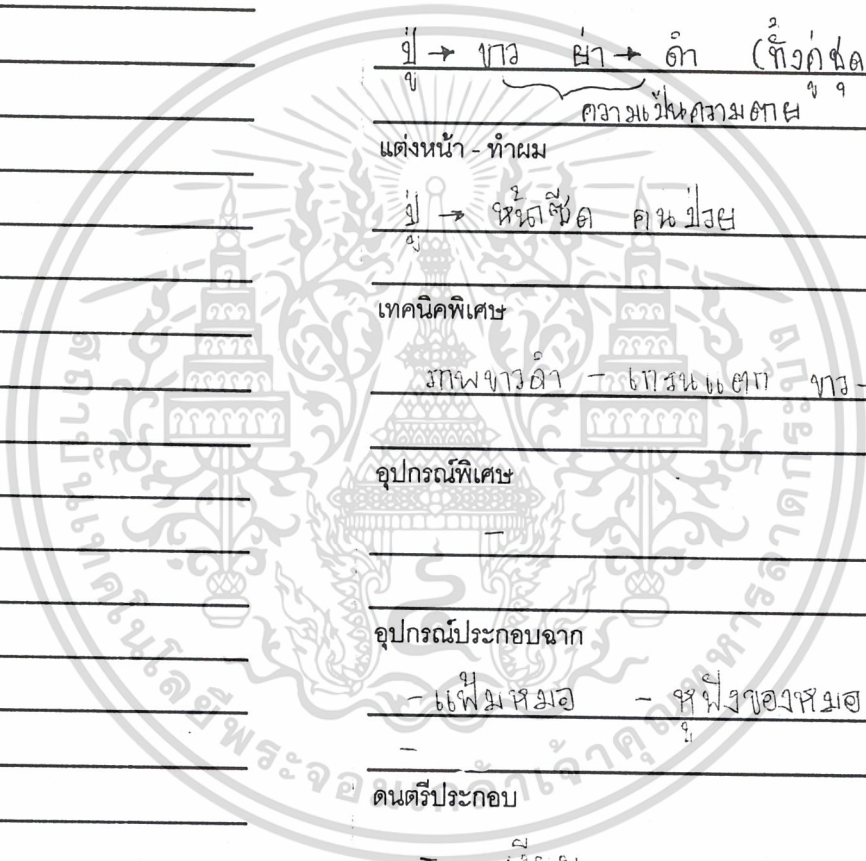 ปู่ → ขาว ย่า → ดำ (ทั้งคู่ชุด
ความเป็นความตาย
แต่งหน้า - ทำผม
ปู่ → หน้าซีด คนป่วย
เทคนิคพิเศษ
ภาพขาวดำ - เกรนแตก ขาว -
อุปกรณ์พิเศษ
-
อุปกรณ์ประกอบฉาก
- แฟ้มหมอ - หูฟังของหมอ
-
ดนตรีประกอบ